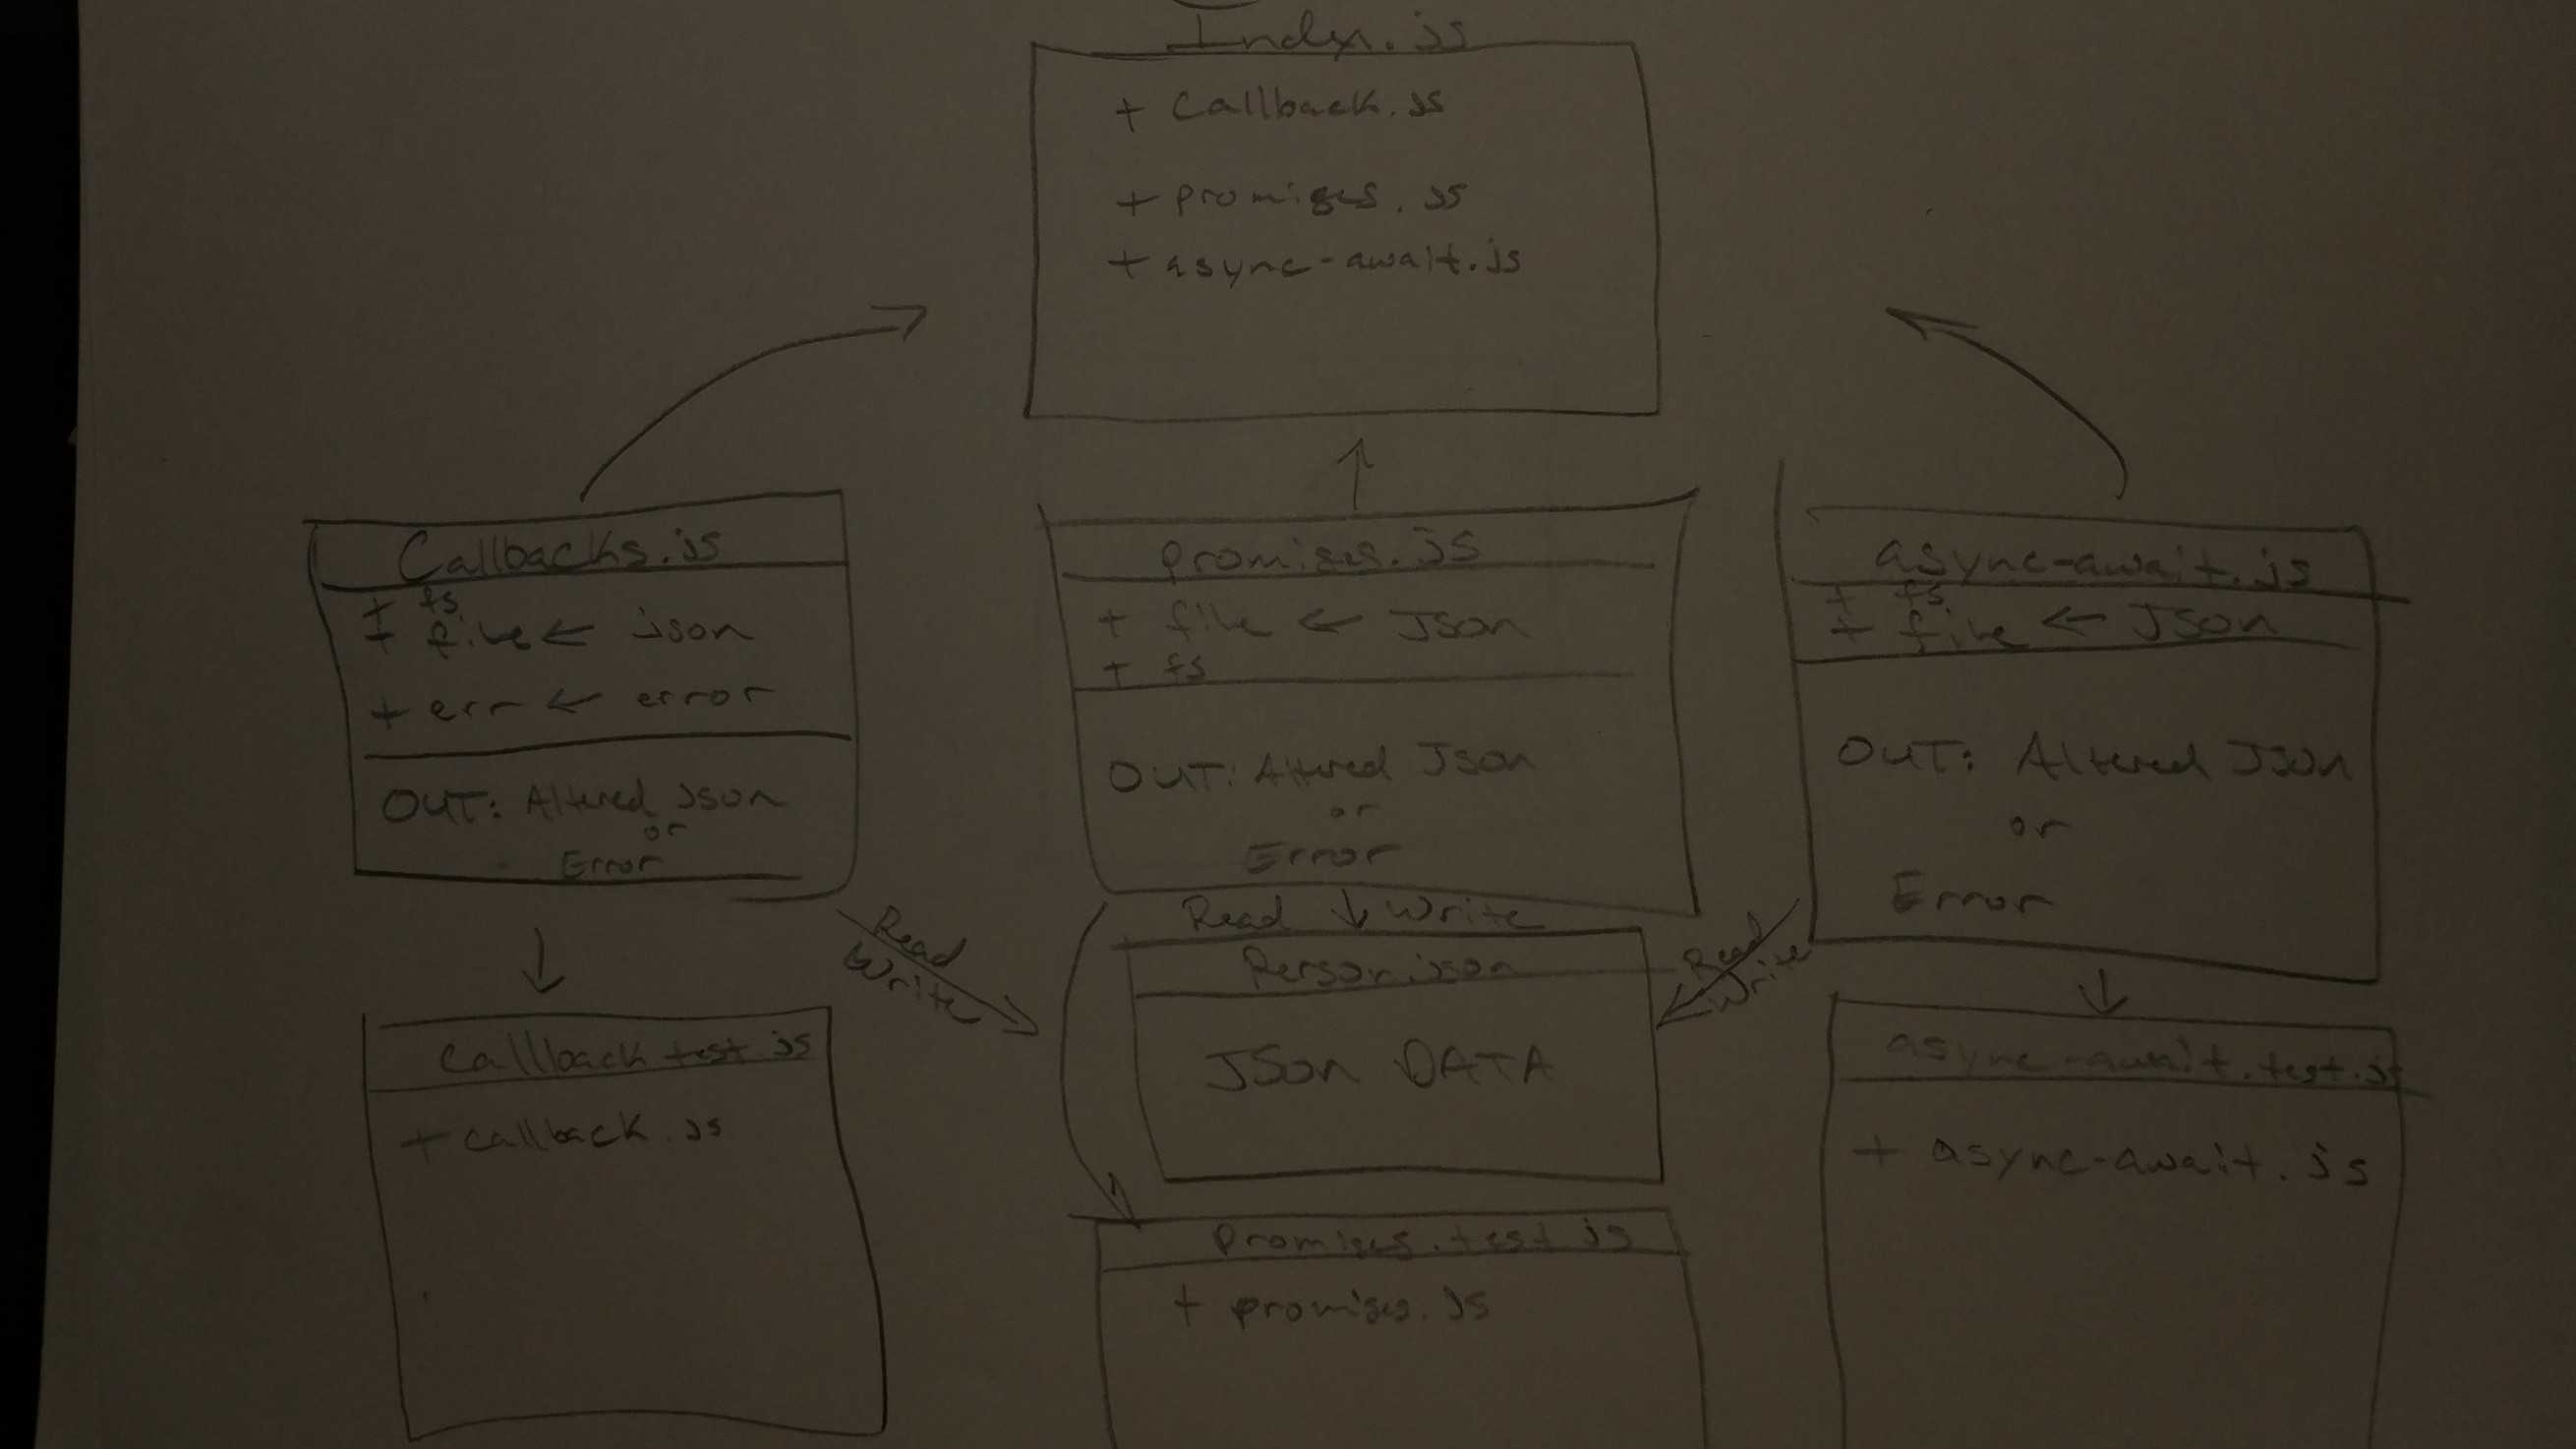 Index.js
+ Callback.js
+ promises.js
+ async-await.js
Callbacks.js
+ fs
+ file ← json
+ err ← error
OUT: Altered Json
or
Error
promises.js
+ file ← Json
+ fs
OUT: Altered Json
or
Error
async-await.js
+ fs
+ file ← Json
OUT: Altered Json
or
Error
Read
Write
Read ↓ Write
Read
Write
Person.json
JSon DATA
Callback.test.js
+ callback.js
promises.test.js
+ promises.js
async-await.test.js
+ async-await.js